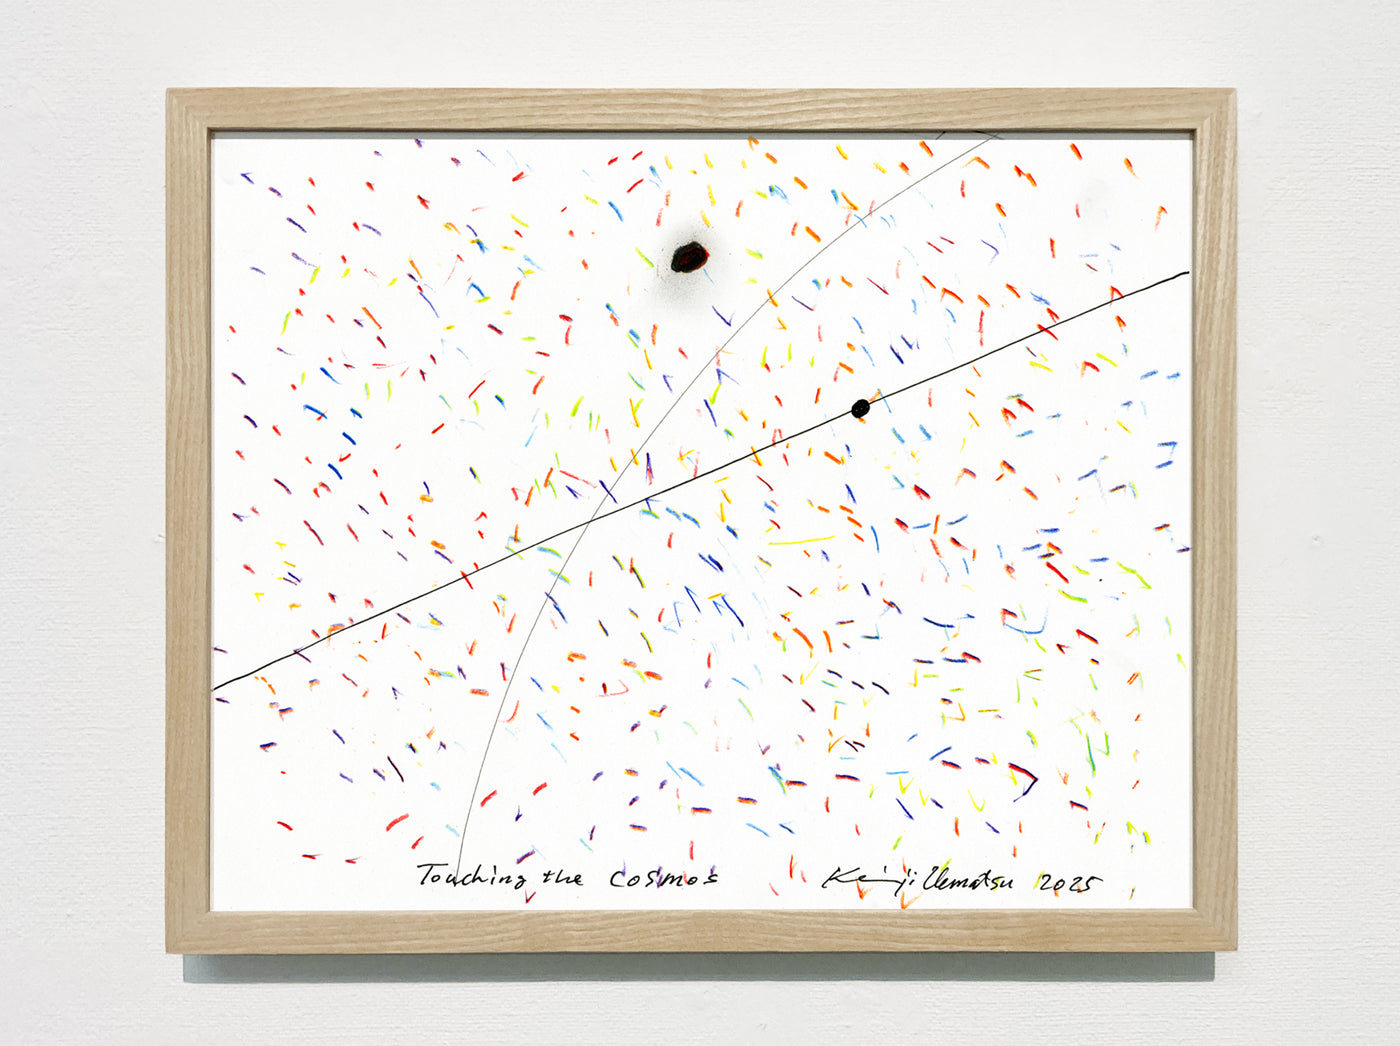 Touching the cosmos Keiji Uematsu 2025